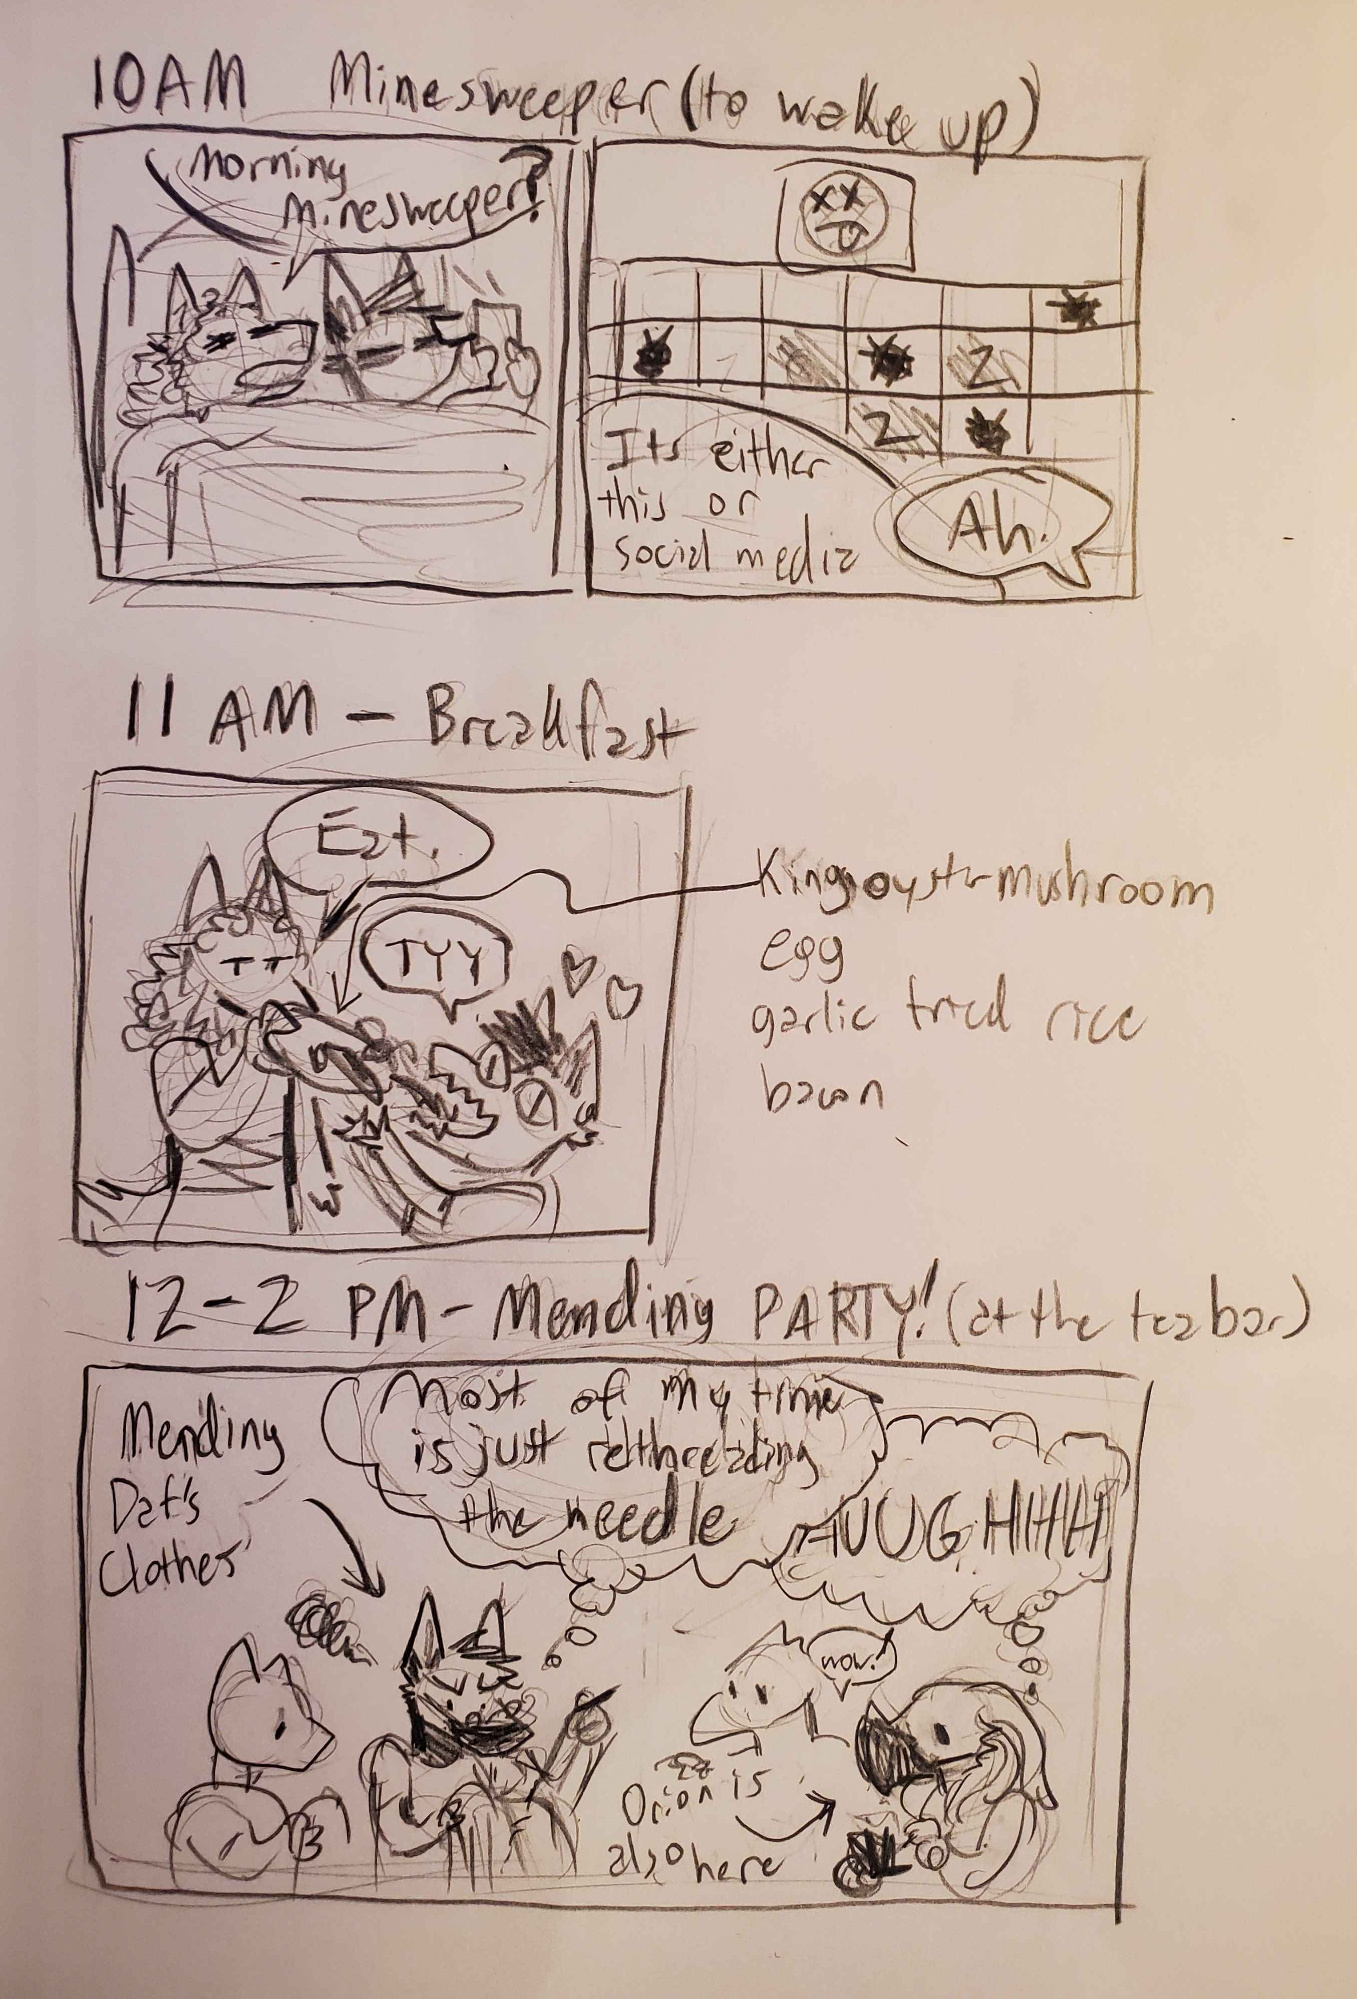 10AM Minesweeper (to wake up)
Morning
Minesweeper?
2
2
Its either
this or
social media
Ah.
11 AM - Breakfast
Eat.
TYY
King oyster mushroom
egg
garlic fried rice
bacon
12-2 PM - Mending PARTY! (at the tea bar)
Mending
Dat's
Clothes
Most of my time
is just rethreading
the needle
AUUGHHHH
wow!
Orion is
also here